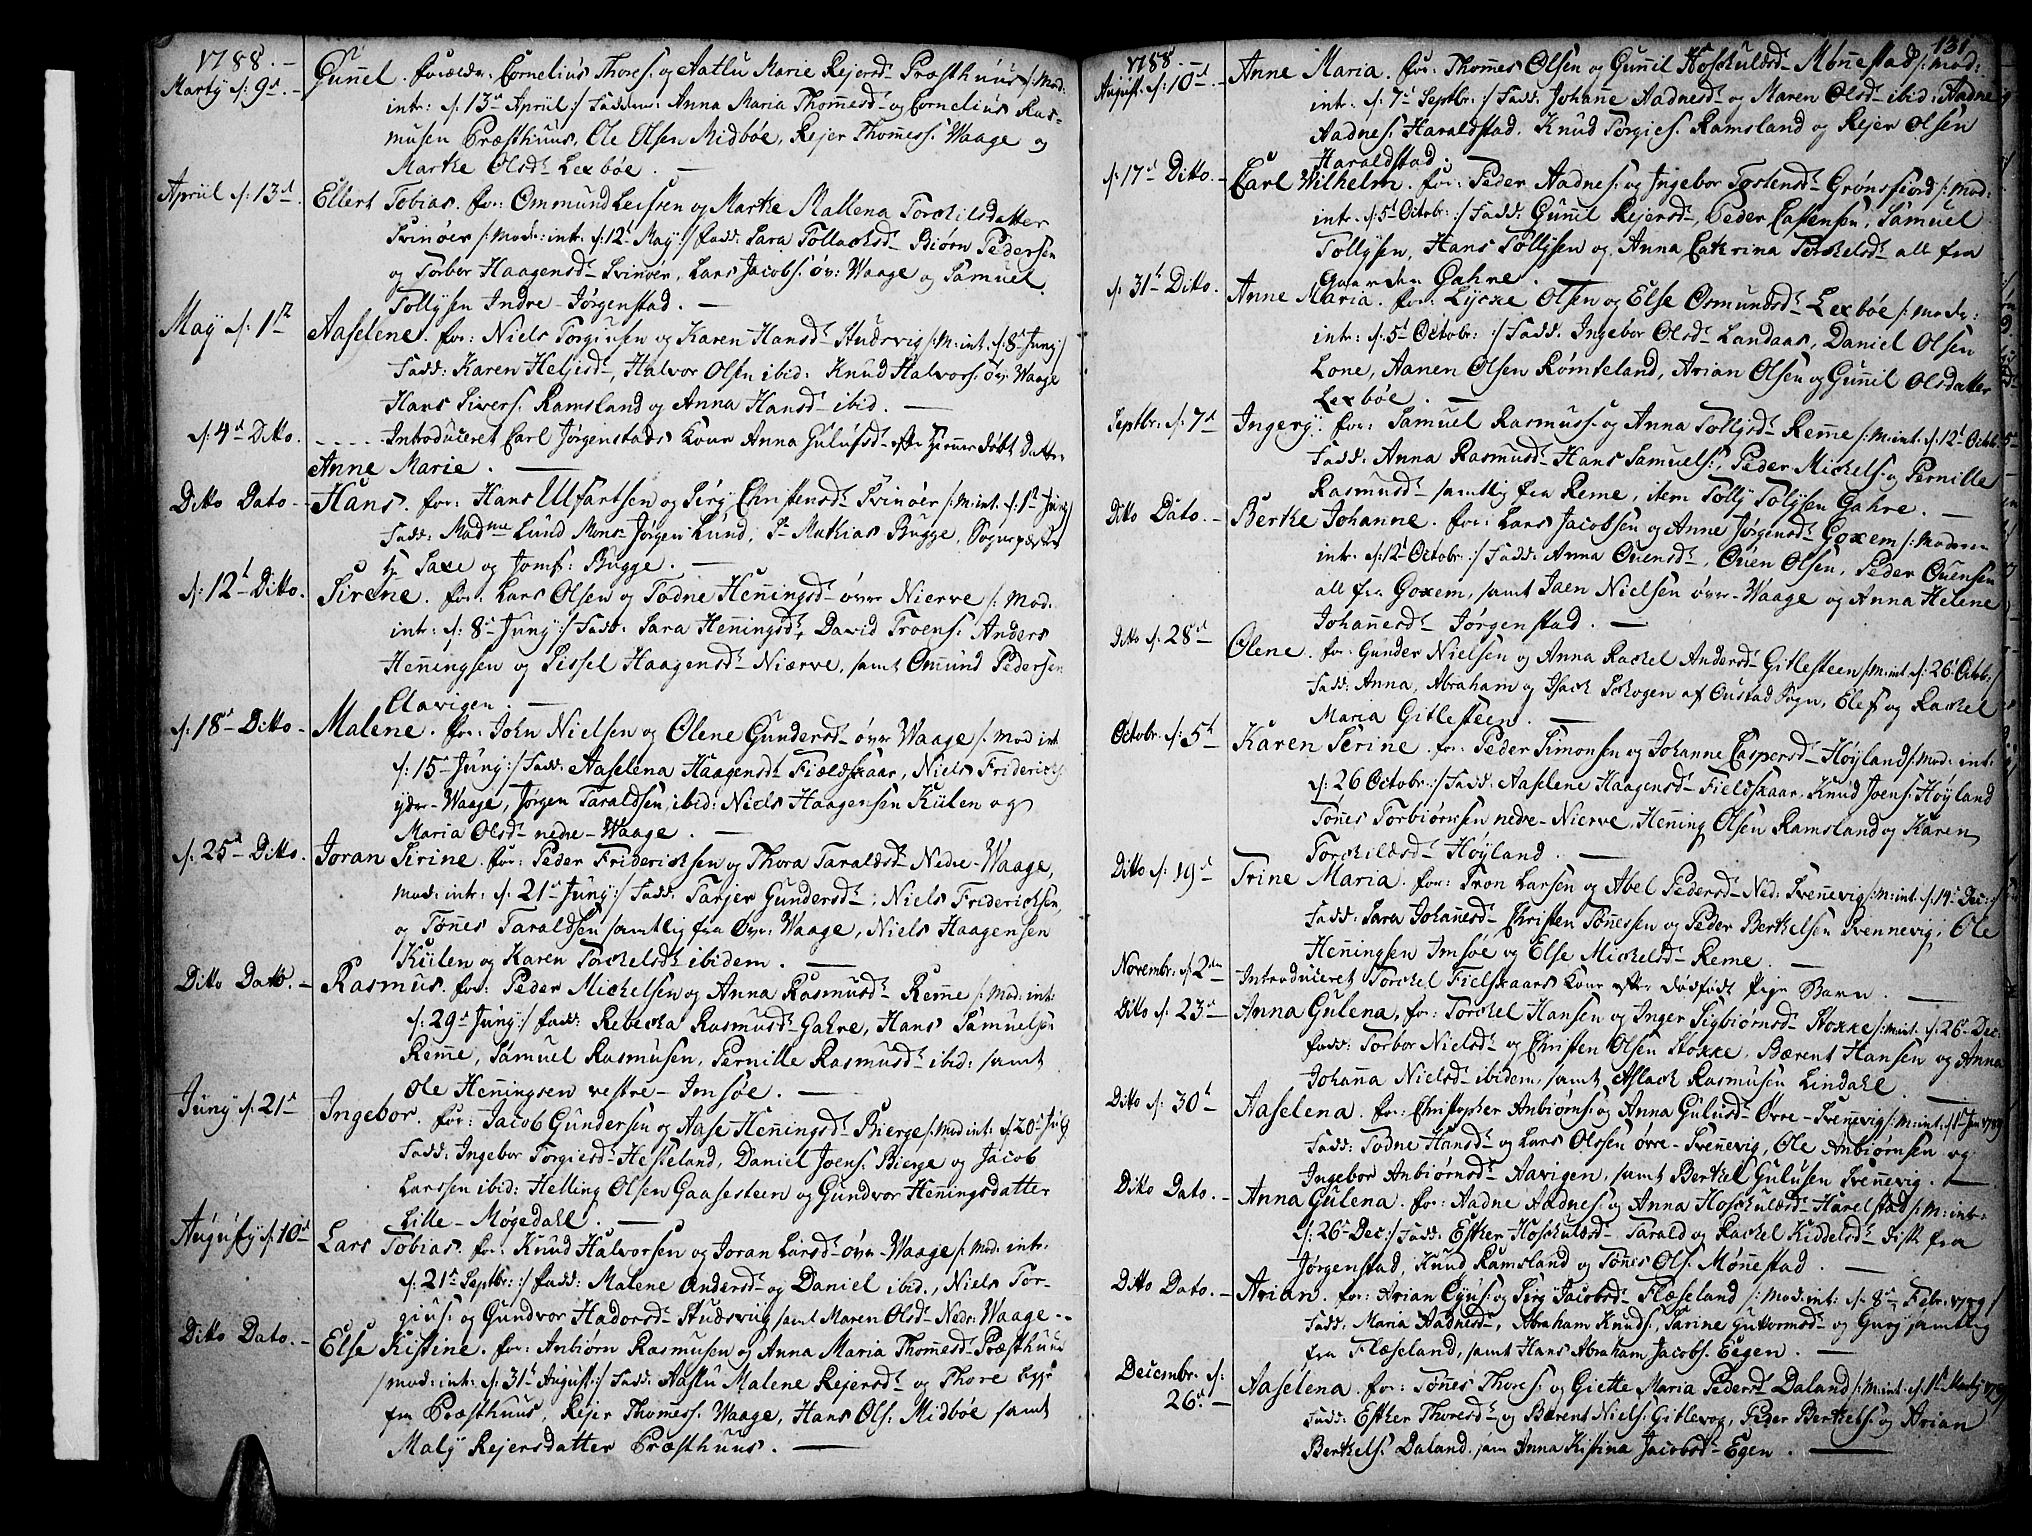 1788.
Marty s: 9d. Gunnel. forældr: Cornelius Thores: og Aatlu Marie Rejersd: Præsthuus /: Mod:
intr: s: 13d Apriil :/ Fadderne: Anna Maria Thomesd: og Cornelius Ras=
musen Præsthuus, Ole Olsen Midbøe, Rejer Thomess: Waage og
Marte Olsd: Lexbøe.
Apriil s: 13d. Ellert Tobias. for: Ommund Leifsen og Marte Mallena Torkilsdatter
Svinøer /: Mod: intr: s: 12 May :/ fadd: Sara Tollacksd: Biørn Pedersen
og Torbor Haagensd: Svinøer, Lars Jacobs: øv: Waage og Samuel
Tollysen Indre Jørgenstad.
May s: 1st Aaselene. for: Niels Torgiusen og Karen Hansd: Studsvig /: M: int: s: 8d Juny :/
Fadd: Karen Heljesd:, Halvor Olsen ibid: Knud Halvors: øv: Waage
Hans Sivers: Ramsland og Anna Hansd: ibid.
s: 4d Ditto. Introduceret Carl Jørgenstads Kone Anna Gulufsd: efter hiemedøbt Datter
Anne Marie.
Ditto Dato. Hans. for: Hans Ulfartsen og Siry Christensd: Svinøer /: M: int: s: 1st Juny :/
Fadd: Madme Lund Mons: Jørgen Lund, Sr Mathias Bugge, Sognepresten
Hr Saxe og Jomf: Bugge.
s: 12t Ditto. Sirene. for: Lars Olsen og Todne Heningsd: øvre Nierve /: Mod:
intr: s: 8d Juny :/ Fadd: Sara Heningsd: David Troens: Anders
Heningsen og Sissel Haagensd: Nierve, samt Omund Pedersen
Aavigen.
s: 18d Ditto. Malene. for: John Nielsen og Olene Gundersd: øvr Waage /: Mod int:
s: 15 Juny :/ Fadd: Aaselena Haagensd: Fieldskaar, Niels Friderichs:
ydre Waage, Jørgen Taraldsen ibid: Niels Haagensen Kulen og
Maria Olsd: nedre Waage.
s: 25d Ditto. Joran Sirine. for: Peder Friderichsen og Thora Taraldsd: Nedre Waage,
Mod: intr: s: 21d Juny :/ Fadd: Tarjer Gundersd:, Niels Friderichsen,
og Tønes Taraldsen samtlig fra Øvr: Waage, Niels Haagensen
Kulen og Karen Torkelsd: ibidem.
Ditto Dato. Rasmus. for: Peder Mickelsen og Anna Rasmusd: Reme /: Mod: int:
s: 29d Juny :/ fadd: Rebecka Rasmusd: Gahre, Hans Samuelsen
Reme, Samuel Rasmusen, Pernille Rasmusd: ibid: samt
Ole Heningsen vestre Imsøe.
Juny s: 21d Ingebor. for: Jacob Gundersen og Aase Heningsd: Bierge /: Mod int: s: 20d July.
Fadd: Ingebor Torgiesd: Hesteland, Daniel Joens: Bierge og Jacob
Larssen ibid: Helling Olsen Gaasesteen og Gundvor Heningsdatter
Lille Møgedahl.
Augusty s: 10d Lars Tobias. for: Knud Halvorsen og Joran Larsd: øvr Waage /: Mod: intr:
s: 21d Septbr: :/ fadd: Malene Andersd: og Daniel ibid., Niels Tor-
gius: og Gundvor Hadorsd: Studsvig samt Maren Olsd: Nedr: Waage
Ditto Dato. Else Kistine. for: Anbiørn Rasmusen og Anna Maria Thomesd: Præsthuus
/mod: int: s: 31t August :/ Fadd: Aaslu Malene Rejersd: og Thore
fra Præsthuus, Rejer Thomess: Waage, Hans Ols: Midbøe samt
Maly Rejersdatter Præsthuus.
131
1788.
August. s: 10d. Anne Maria. for: Thomes Olsen og Gunil Hoskuldsd: Mønestad /: Mod:
int: s: 7d Septbr: :/ Fadd: Johanne Aadnesd: og Maren Olsd: ibid: Aadne
Aadnes: Haraldstad. Knud Torgies: Ramsland og Rejer Olsen
Haraldstad.
s: 17d Ditto. Carl Wilhelm. for: Peder Aadnes: og Ingebor Tostensd: Grønsfiord /: Mod:
intr: s: 5t Octobr: :/ Fadd: Gunil Rejersd:, Peder Cassensen, Samuel
Tollysen, Hans Tollysen og Anna Cathrina Torkelsd: all fra
Gaarden Gahre.
s: 31t Ditto. Anne Maria. for: Lycke Olsen og Else Osmundsd: Lexbøe /: Modr:
int: s: 5t Octobr: :/ Fadd: Ingebor Olsd: Landaas, Daniel Olsen
Lone, Aanen Olsen Rømteland, Arian Olsen og Gunil Olsdatter
Lexbøe.
Septbr: s: 7d Ingery. for: Samuel Rasmuss: og Anna Tollysd: Reme /: M: int: s: 12t Octbr:
Fadd: Anna Rasmusd: Hans Samuels:, Peder Mickels: og Pernille
Rasmusd: samtlig fra Reme, item Tolly Tollysen Gahre.
Ditto Dato. Berte Johanne. for: Lars Jacobsen og Anne Jørgensd: Goxem /: Moderen
intr: s: 12t Octobr: :/ Fadd: Anna Ouensd:, Ouen Olsen, Peder Ouensen
all fra Goxem, samt Jaen Nielsen øvr Waage og Anna Helene
Johannesd: Jørgenstad.
Ditto s: 28d Olene. for: Gunder Nielsen og Anna Rachel Andersd: Gitlesteen /: M: int: s: 26t Octobr:
Fadd: Anna, Abraham og Isack Schogen af Oustad Sogn, Elef og Rachel
Maria Gitlesteen.
Octobr. s: 5t Karen Serine. for: Peder Simonsen og Johanne Caspersd: Høyland /: Mod: int:
s: 26 Octobr: :/ Fadd: Aaselene Haagensd: Fieldskaar, Knud Joens: Høyland
Tønes Torbiørnsen nedre Nierve, Hening Olsen Ramsland og Karen
Torkildsd: Høyland.
Ditto s: 19d Trine Maria. for: Tron Larsen og Abel Pedersd: Ned: Svennevig /: M: int: s: 14d Dec: :/
Fadd: Sara Johannesd: Christen Tønessen og Peder Bertelsen Svennevig, Ole
Heningsen Imsøe og Else Mickelsd: Reme.
Novembr: s: 2den Introduceret Torckel Fielskaars Kone efter dødfødt Pige Barn.
Ditto s: 23d Anna Gulena, for: Torckel Hansen og Inger Sigbiørnsd: Stokke /: M: int: s: 26d Dec:
fadd: Torbor Nielsd: og Christen Olsen Stokke, Bærent Hansen og Anna
Johanna Nielsd: ibidem, samt Aslack Rasmusen Lindahl.
Ditto s: 30t Aaselena. for: Christopher Anbiørns: og Anna Gulusd: Øvre Svennevig /: M: int: s: 1st Jan 1789
Fadd: Todne Hansd: og Lars Olssen øvre Svennevig, Ole Anbiørnsen og
Ingebor Anbiørnsd: Aavigen, samt Bertel Gulusen Svennevig.
Ditto Dato. Anna Gulena. for: Aadne Aadnes: og Anna Hoskuldsd: Harelstad /: M: int:
s: 26 Dec: :/ Fadd: Ester Hoskuldsd: Tarald og Rachel Kiddelsd: disse fra
Jørgenstad, Knud Ramsland og Tønes Ols: Mønestad.
Ditto Dato. Arian. for: Arian Gyus: og Siry Jacobsd: Flæseland /: Mod: int: s: 8d Febr: 1789 :/
Fadd: Maria Aadnesd:, Abraham Knuds: Tarine Guttormsd: og Gury samtlig
fra Flæseland, samt Hans Abraham Jacobs: Eegen.
Decembr. s: 26d. Aaselena. for: Tønes Thores: og Giette Maria Pedersd: Daland /: M: int: s: 1st Marty 1789
Fadd: Ester Thoresd: og Bærent Niels: Gitlevog, Peder Bertels: og Arian
Bertels: Daland, sam Anna Kistina Jacobsd: Egen.